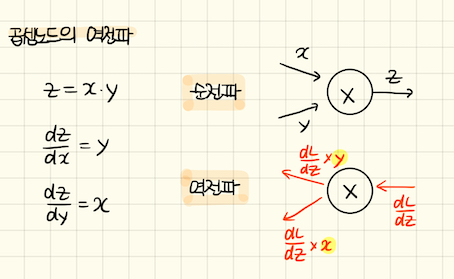 곱셈노드의 역전파
z = x·y
dz/dx = y
dz/dy = x
순전파
x
y
×
z
역전파
dL/dz × y
×
dL/dz
dL/dz × x